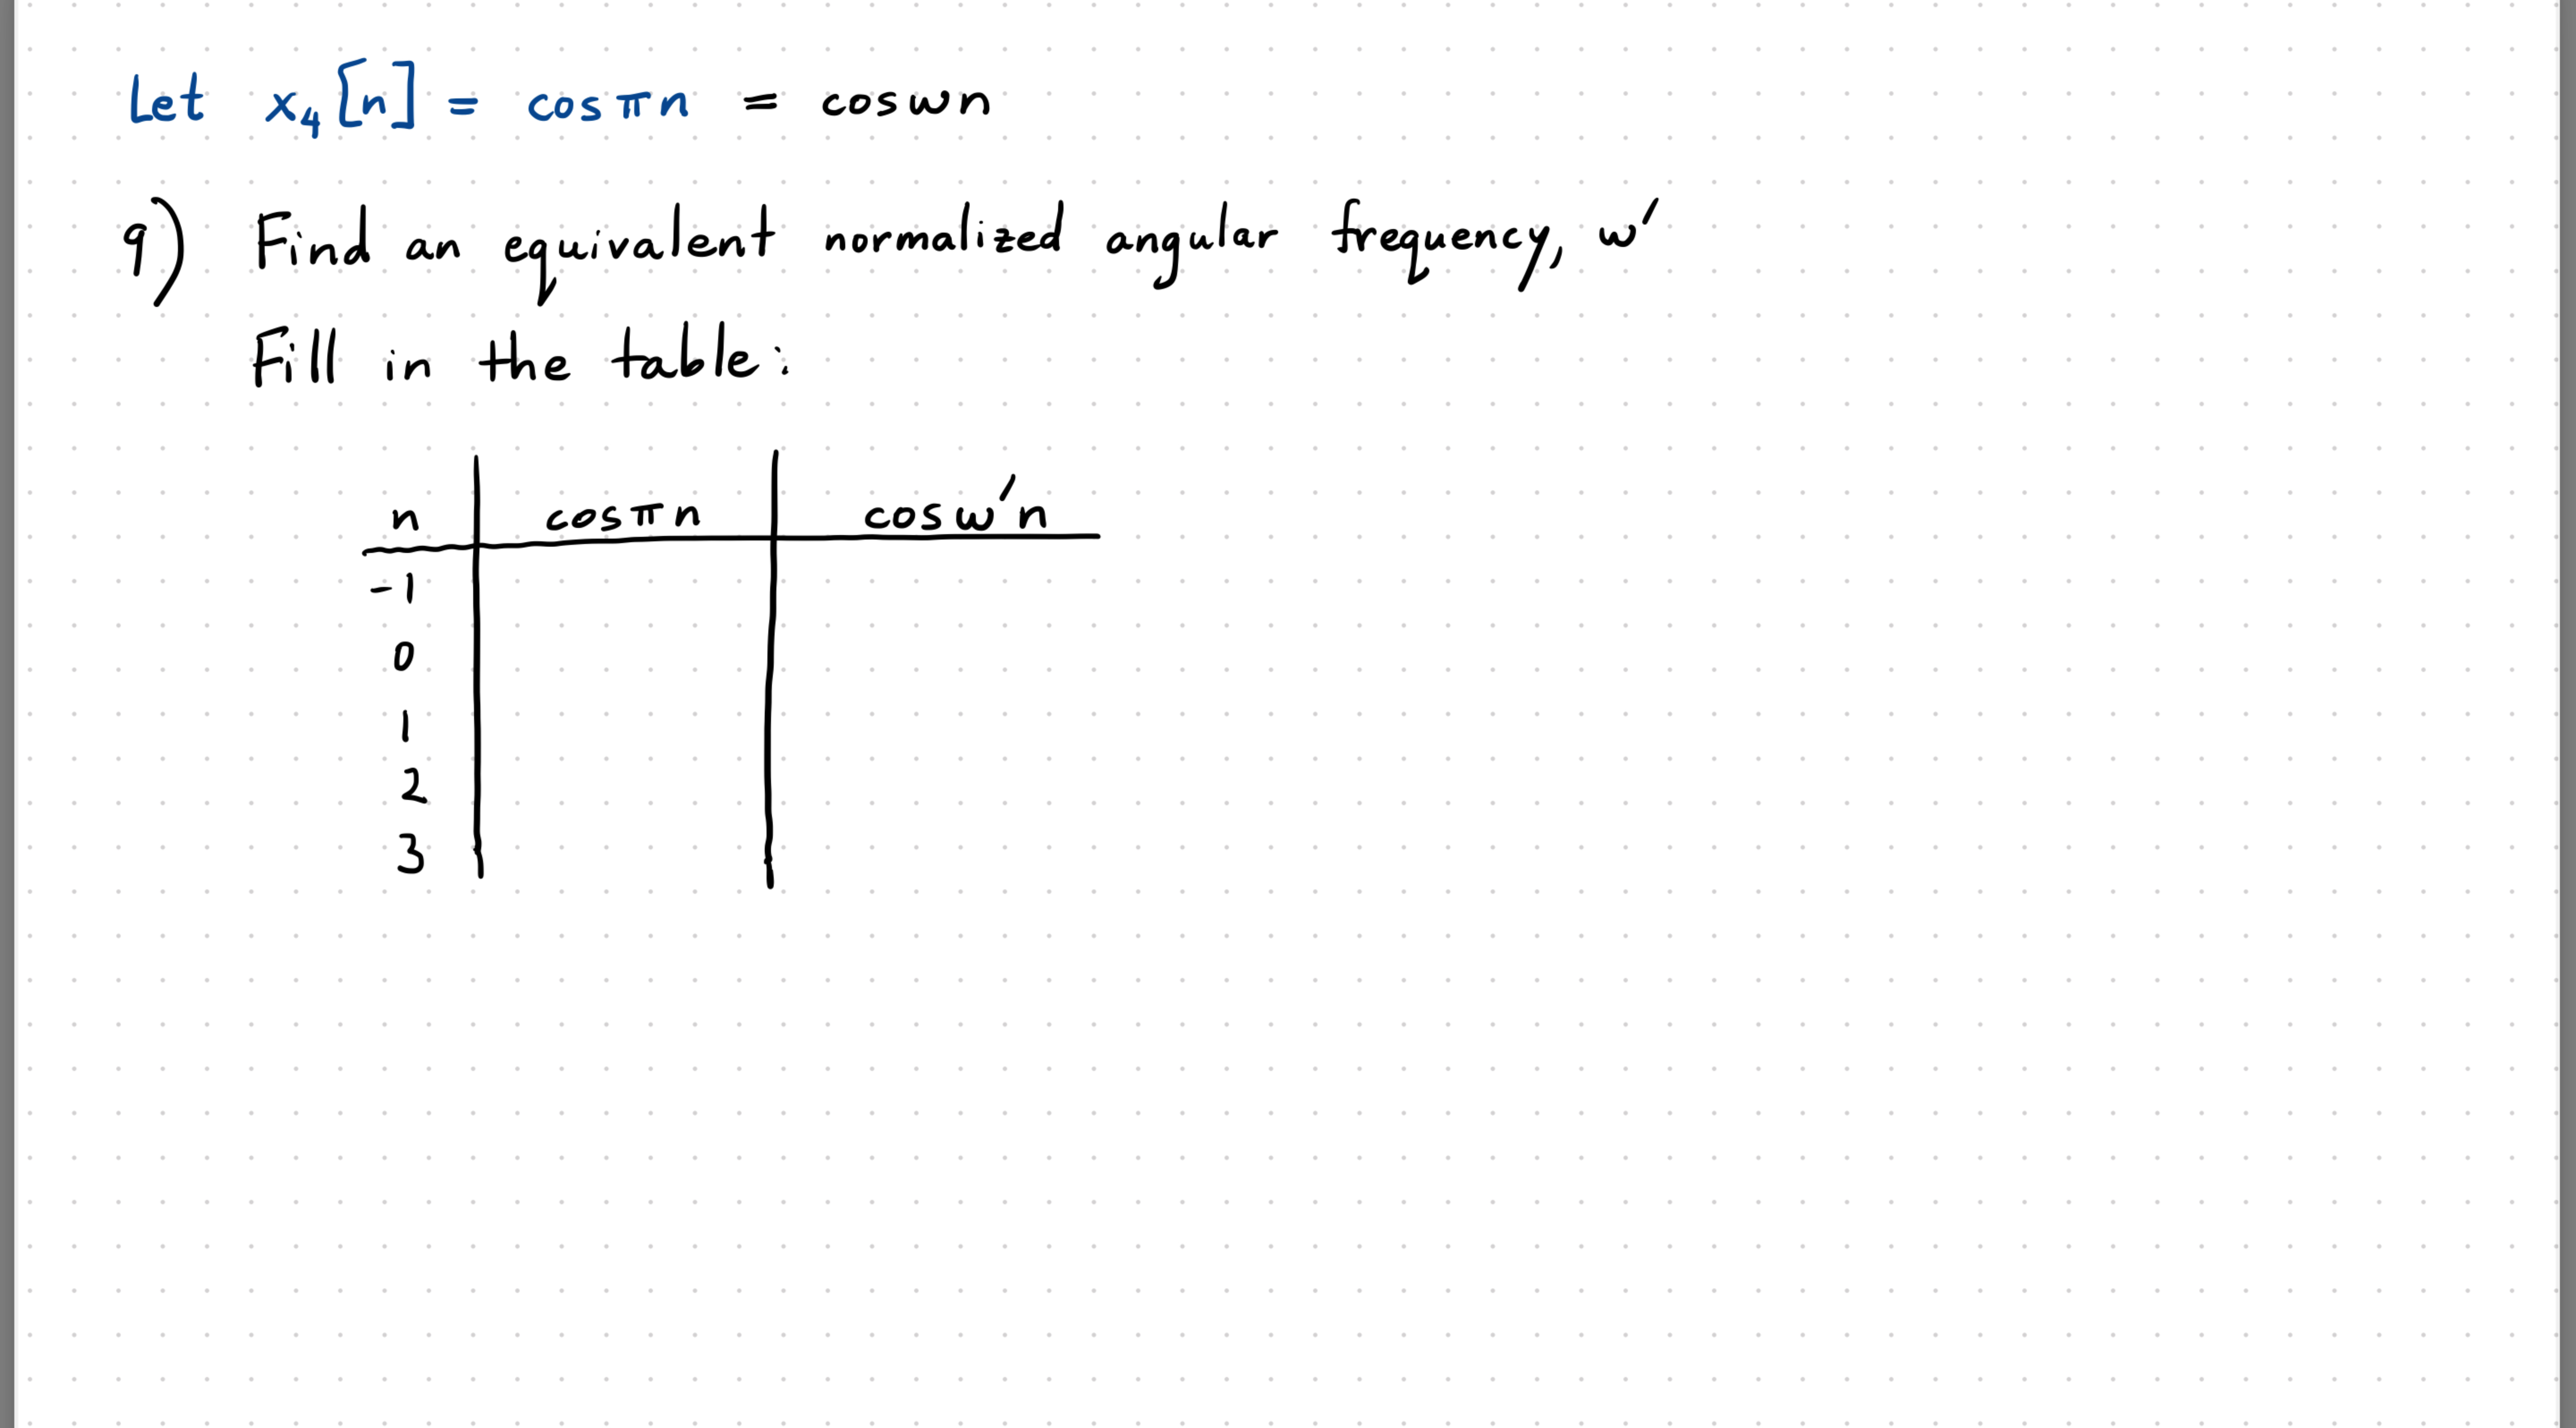 Let x₄[n] = cos πn = cos ωn
9) Find an equivalent normalized angular frequency, ω′
Fill in the table:
n cos πn cos ω′n
-1
0
1
2
3